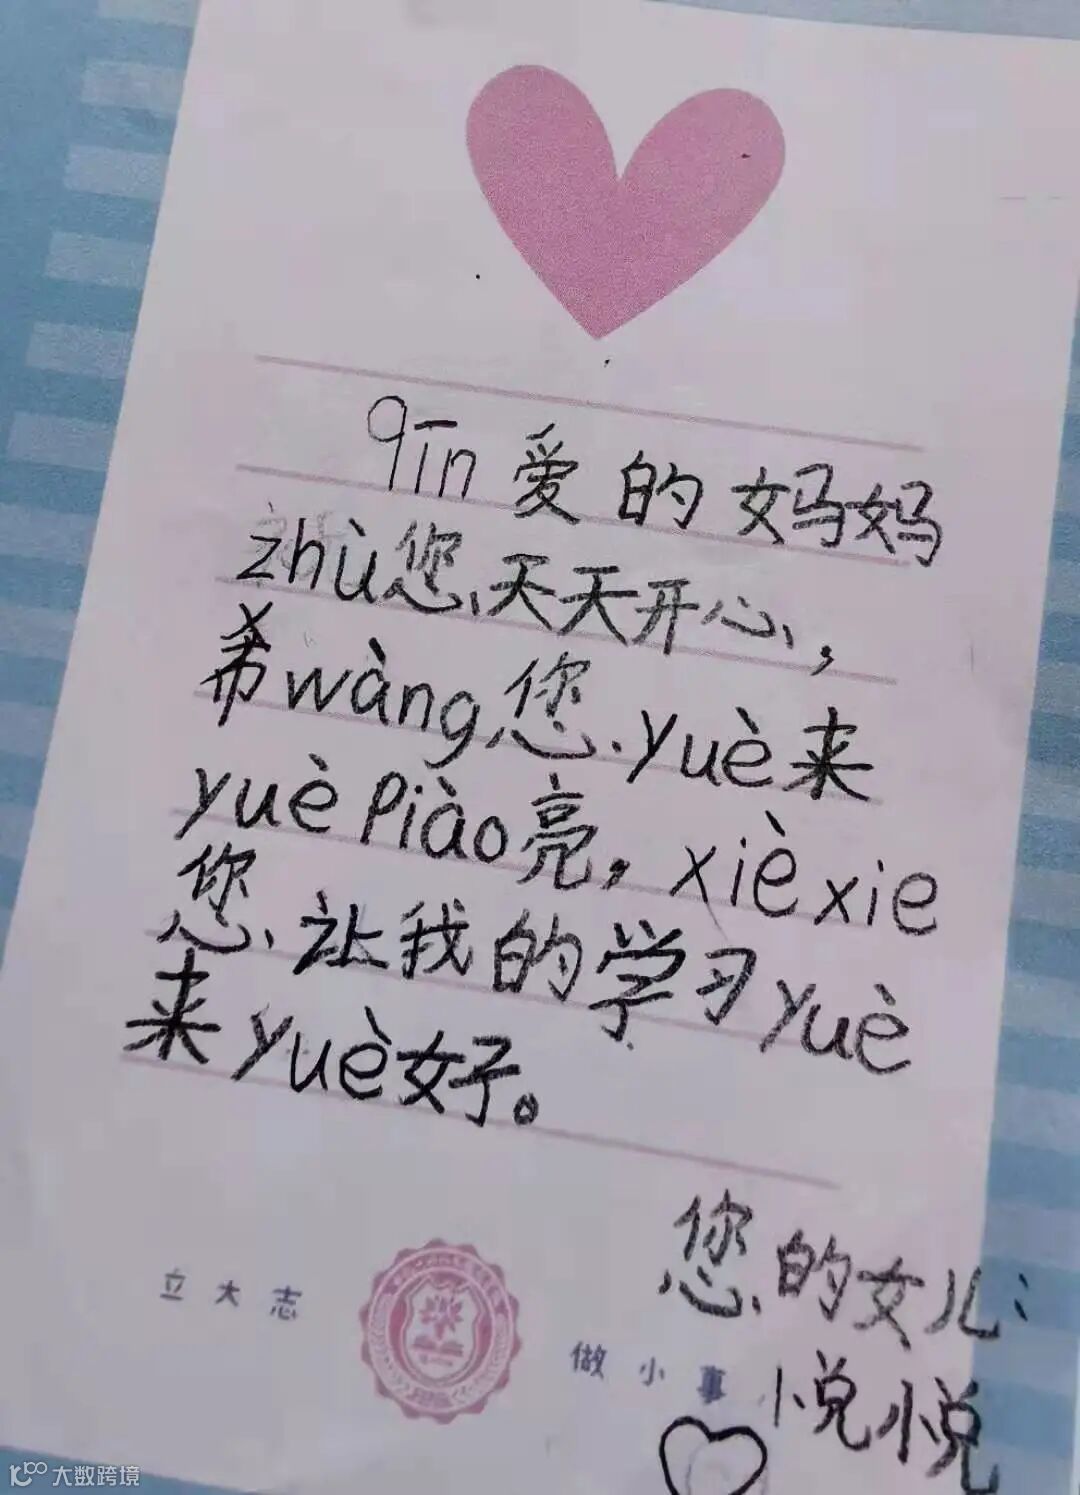 qīn爱的妈妈
zhù您天天开心，
希wàng您yuè来
yuèpiào亮，xièxie
您让我的学习yuè
来yuè好。
您的女儿：
悦悦
立大志
做小事
大数跨境